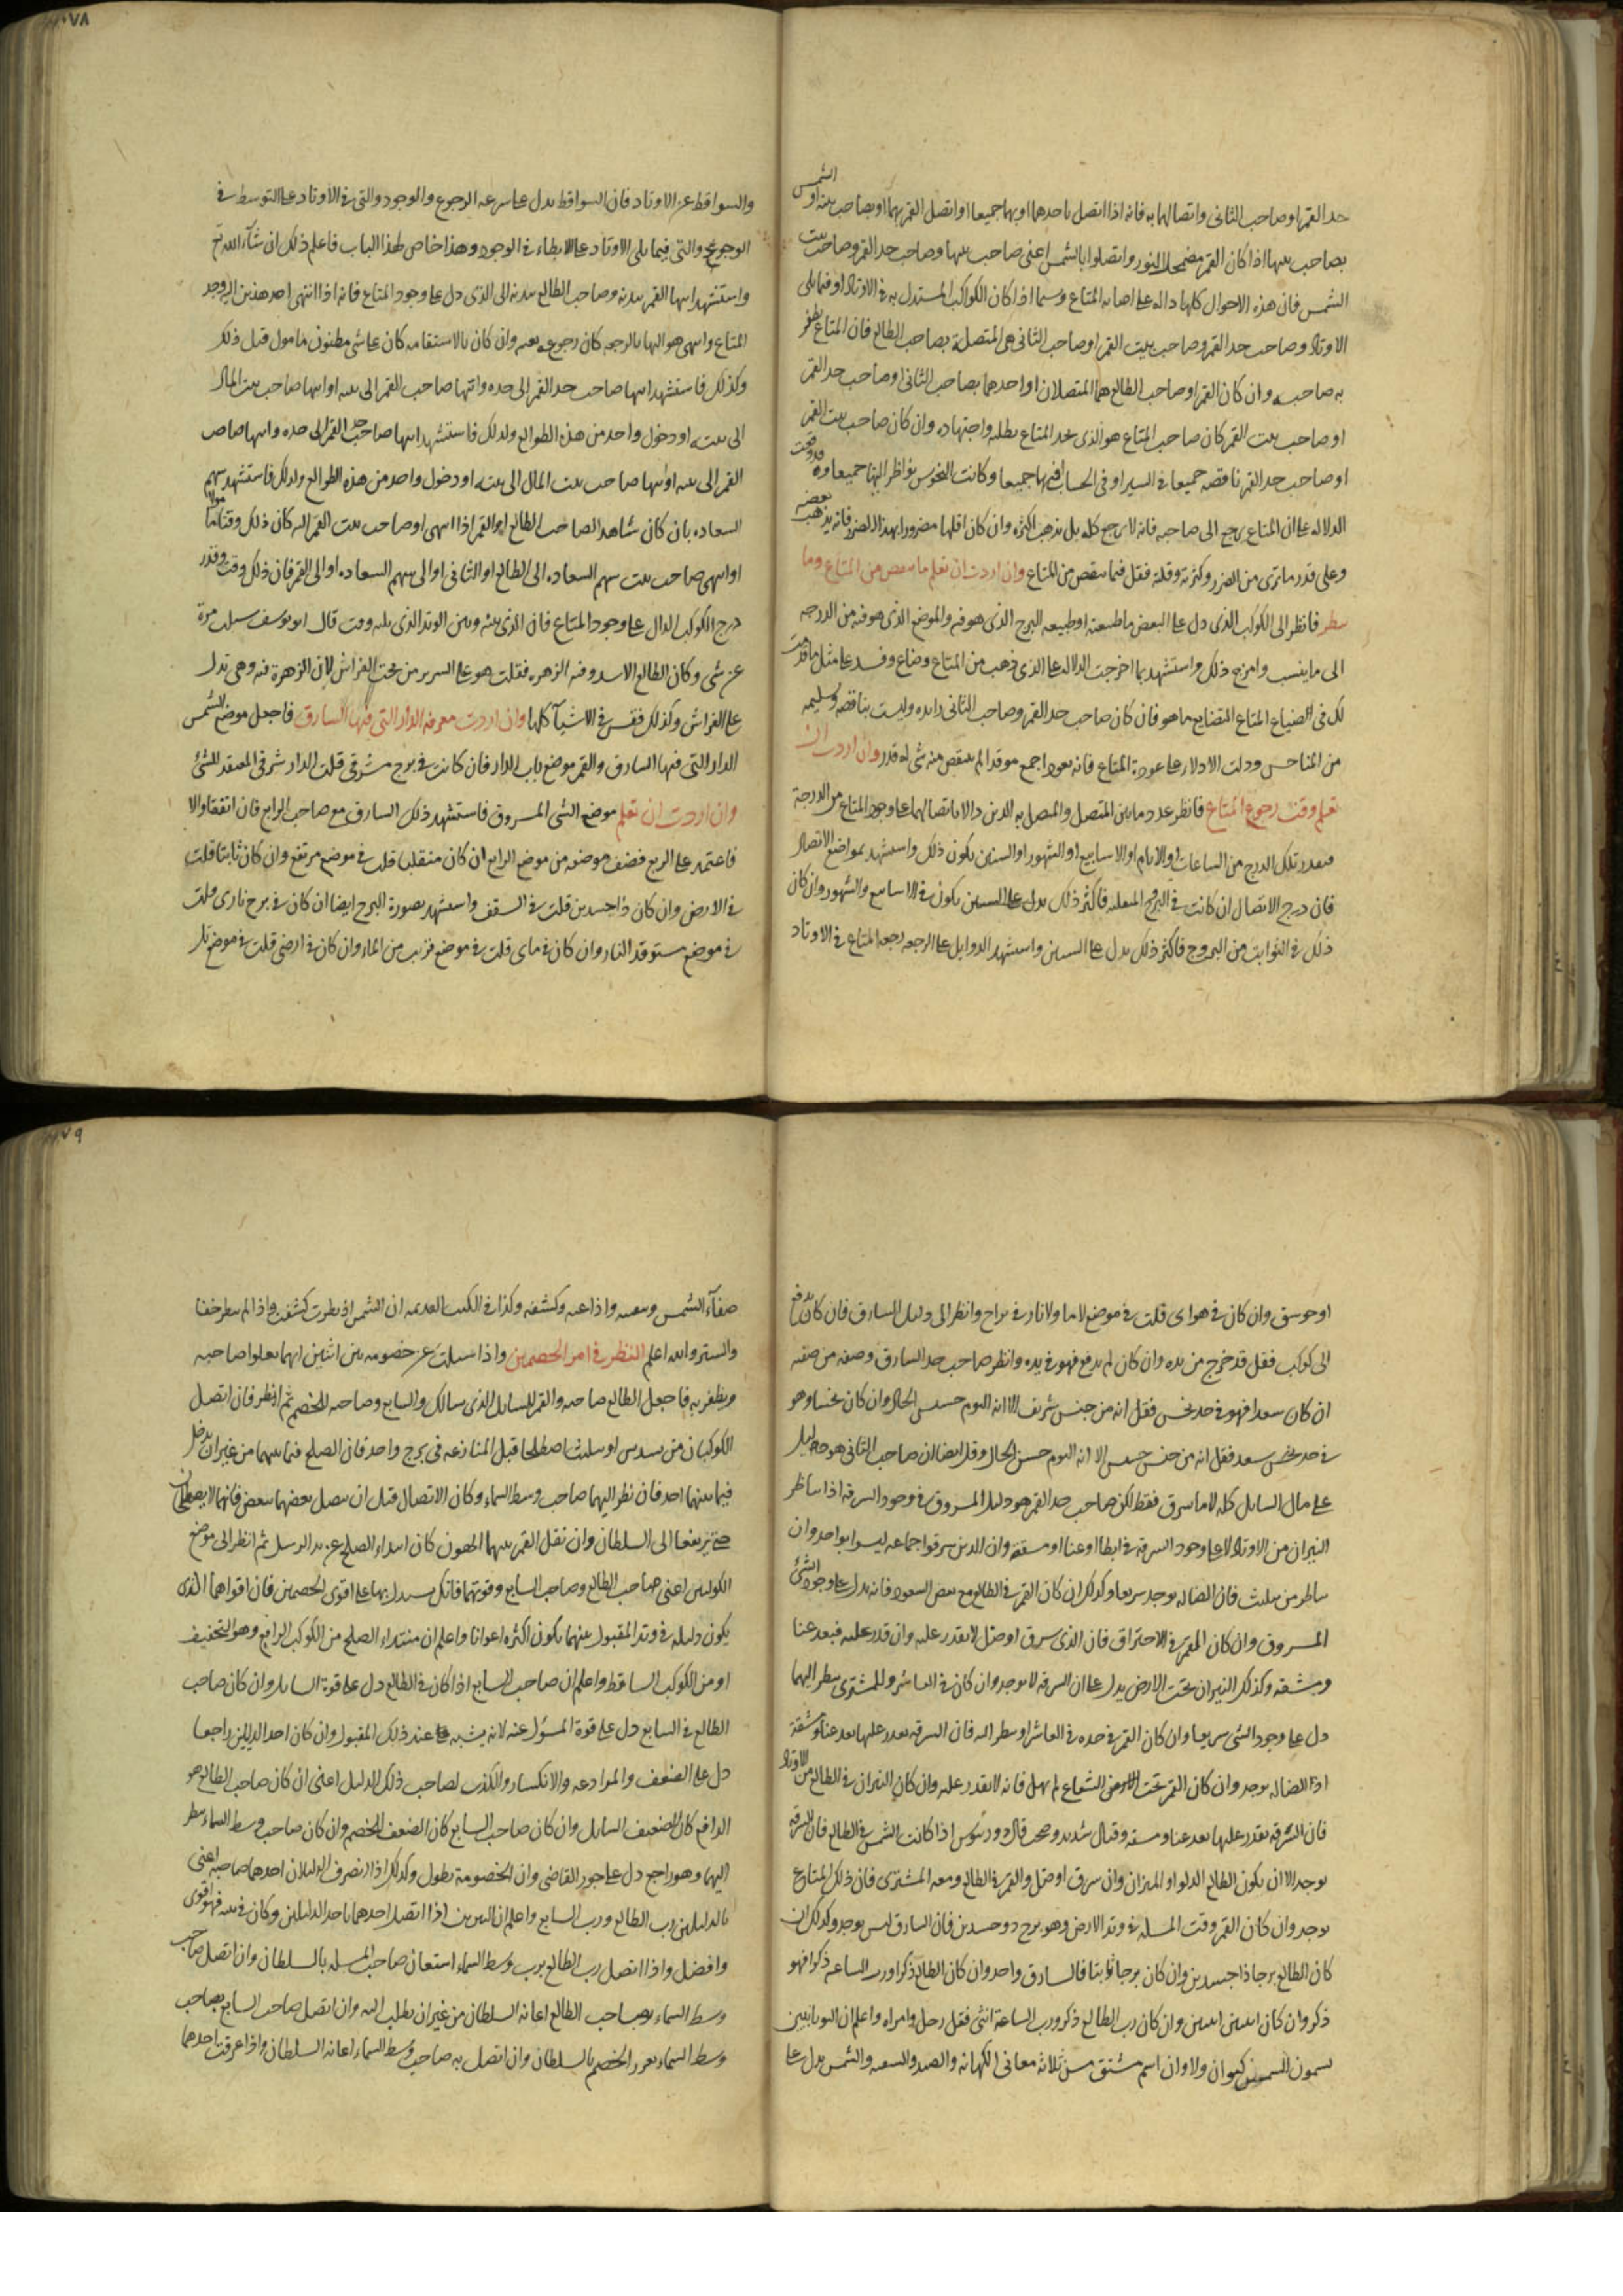 حد القمر او صاحب الثاني واتصالهما به فانه اذا اتصل باحدهما او بهما جميعا او اتصل القمر بهما او بصاحب بيته او الشمس
بصاحب بيتها اذا كان القمر مضمحل النور واتصلوا بالشمس اعنى صاحب بيتها وصاحب حد القمر وصاحب بيت
الشمس فان هذه الاحوال كلها داله على اصابه المتاع وسيما اذا كان الكواكب المستدل به فى الاوتاد او فيما يلى
الاوتاد وصاحب حد القمر وصاحب بيت القمر او صاحب الثانى هى المتصلة بصاحب الطالع فان المتاع يظفر
به صاحبه وان كان القمر او صاحب الطالع هما المتصلان او احدهما بصاحب الثانى او صاحب حد القمر
او صاحب بيت القمر كان صاحب المتاع هو الذى يجد المتاع بطلبه واجتهاده وان كان صاحب بيت القمر
او صاحب حد القمر ناقصه جميعا فى السير او فى الحساب فيهما جميعا وكانت النحوس نواظر اليها جميعا وقد وقعت
الدلاله على ان المتاع يرجع الى صاحبه فانه لا يرجع كله بل يذهب اكثره وان كان اقلها مضرورا بهذا الضرر فانه يذهب بعضه
وعلى قدر ما ترى من الضرر وكثرته وقلته فقل فيما ينقص من المتاع وان اردت ان تعلم ما ينقص من المتاع وما
يبطل فانظر الى الكوكب الذى دل على البعض ما طبيعته او طبيعه البرج الذى هو فيه والموضع الذى هو فيه من الدرجه
الى ما ينسب وامزج ذلك واستشهد بما اخرجت الدلاله على الذى ذهب من المتاع وضاع وفسد على مثل ما قدمت
لك فى الضياع المتاع المتضايع ما هو فان كان صاحب حد القمر وصاحب الثانى زايده وليست بناقصه وسليمه
من المناحس ودلت الادلاء على عودة المتاع فانه يعود اجمع موقرا لم ينقص منه شى له قدر وان اردت ان
تعلم وقت رجوع المتاع فانظر عدد ما بين المتصل والمتصل به الذين دلا باتصالهما على وجود المتاع من الدرجة
فبعدد تلك الدرج من الساعات او الايام او الاسابيع او الشهور او السنين يكون ذلك واستشهد بمواضع الاتصال
فان درج الاتصال ان كانت فى البروج المنقلبه فاكثر ذلك يدل على السنين يكون فى الاسابيع والشهور وان كان
ذلك فى الثوابت من البروج فاكثر ذلك يدل على السنين واستشهد الدوابل على الرجعه رجعه المتاع فى الاوتاد
والسواقط عن الاوتاد فان السواقط يدل على سرعه الرجوع والوجود والتى فى الاوتاد على التوسط فى
الوجوع والتى فيما يلى الاوتاد على الابطاء فى الوجود وهذا خاص لهذا الباب فاعلم ذلك ان شآء الله تع
واستشهد انتها القمر ببدنه وصاحب الطالع ببدنه الى الذى دل على وجود المتاع فانه اذا انتهى احد هذين الى وجد
المتاع وانتهى هو اليها بالرجعه كان رجوعه بغته وان كان بالاستقامه كان على شى مظنون مامول قبل ذلك
وكذلك فاستشهد انتها صاحب حد القمر الى حده وانتها صاحب القمر الى بيته او انتها صاحب بيت المال
الى بيته او دخول واحد من هذه الطوالع ولذلك فاستشهد انتها صاحب حد القمر الى حده وانتها صاحب
القمر الى بيته او انتها صاحب بيت المال الى بيته او دخول واحد من هذه الطوالع ولذلك فاستشهد سهم
السعاده بان كان شاهد الصاحب الطالع او القمر اذا انتهى او صاحب بيت القمر اليه كان ذلك وقتا لها
او انتهى صاحب بيت سهم السعاده الى الطالع او الثانى او الى سهم السعاده او الى القمر فان ذلك وقت وقدر
درج الكوكب الدال على وجود المتاع فان الذى بينه وبين الوتد الذى يليه وقت قال ابو يوسف سيلت مرة
عن شى وكان الطالع الاسد وفيه الزهره فقلت هو على السرير من تحت الفراش لان الزهرة فيه وهى تدل
على الفراش وكذلك فقس فى الاشيآء كلها وان اردت معرفة الدار التى فيها السارق فاجعل موضع الشمس
الدار التى فيها السارق والقمر موضع باب الدار فان كانت فى برج مشرقى قلت الدار شرقى المعقد للشئ
وان اردت ان تعلم موضع الشى المسروق فاستشهد ذلك السارق مع صاحب الرابع فان اتفقا والا
فاعتمد على الربع فضف موضعه من موضع الرابع ان كان منقلبا قلت فى موضع مرتفع وان كان ثابتا قلت
فى الارض وان كان ذا جسدين قلت فى السقف واستشهد بصورة البرج ايضا ان كان فى برج نارى قلت
فى موضع مستوقد النار وان كان فى ماى قلت فى موضع قريب من الماء وان كان فى ارضى قلت فى موضع تل
او جوسق وان كان فى هواى قلت فى موضع لا ما ولا نار فى براح وانظر الى دليل السارق فان كان يدفع
الى كوكب فقل قد خرج من يده وان كان لم يدفع فهو فى يده وانظر صاحب حد السارق وصفه من صفته
ان كان سعدا فهو فى حد نحس فقل انه من جنس شريف الا انه اليوم خسيس الحال وان كان نحسا وهو
فى حد نحس سعد فقل انه من جنس خسيس الا انه اليوم حسن الحال وقل ايضا ان صاحب الثانى هو دليل
على مال السايل كله لا ما سرق فقط لكن صاحب حد القمر هو دليل المسروق فى وجود السرقه اذا تناظر
النيران من الاوتاد لا على وجود السرقه فى ابطا او عنا او مشقة وان الذين سرقوا جماعه ليسوا بواحد وان
تناظر من تثليث فان الضاله يوجد سريعا وكذلك ان كان القمر فى الطالع مع بعض السعود فانه يدل على وجود الشئ
المسروق وان كان القمر فى الاحتراق فان الذى سرق او ضل لا يقدر عليه وان قدر عليه فبعد عنا
ومشقه وكذلك النيران تحت الارض يدل على ان السرقه لا يوجد وان كان فى العاشر والمشترى ينظر اليهما
دل على وجود الشى سريعا وان كان القمر فى حده فى العاشر او ينظر اليه فان السرقه يقدر عليها بعد عنا ومشقة
اذا الضاله يوجد وان كان القمر تحت الارض الشعاع لم يهل فانه لا يقدر عليه وان كان النيران فى الطالع من الاوتاد
فان السرقه يقدر عليها بعد عنا ومشقه وقتال شديد وصحب قال دورنيوس اذا كانت الشمس فى الطالع فان السرقه
يوجد الا ان يكون الطالع الدلو او الميزان وان سرق او ضل والقمر فى الطالع ومعه المشترى فان ذلك المتاع
يوجد وان كان القمر وقت المسله فى وتد الارض وهو برج ذو جسدين فان السارق ليس يوجد وكذلك ان
كان الطالع برجا ذا جسدين وان كان برجا ثابتا فالسارق واحد وان كان الطالع ذكرا ورب الساعه ذكرا فهو
ذكر وان كان انثيين انثيين وان كان رب الطالع ذكر ورب الساعة انثى فقل رجل وامراه واعلم ان اليونانيين
يسمون الشمس كيوان ولا وان اسم مشتق من ثلاثه معانى الكهانه والصيد والسعه والشمس يدل على
صفآء الشمس وتعينه واذاعته وكشفه وكذا فى الكتب القديمه ان الشمس اذ نظرت كشفت واذا لم ينظر خفا
والستر والله اعلم النظر فى امر الخصمين واذا سيلت عن خصومه بين اثنين ايهما يعلوا صاحبه
ويظفر به فاجعل الطالع وصاحبه والقمر للسايل الذى سالك والسابع وصاحبه للخصم ثم انظر فان اتصل
الكوكبان من تسديس او تثليث اصطلحا قبل المنازعه فى برج واحد فان الصلح فيما بينهما من غير ان يدخل
فيما بينهما احد فان نظر اليهما صاحب وسط السماء وكان الاتصال قبل ان يتصل بعضهما ببعض فانهما لا يصطلحان
حتى يرتفعا الى السلطان وان نقل القمر بينهما الضون كان ابتداء الصلح عن يد الرسل ثم انظر الى موضع
الكوكبين اعنى صاحب الطالع وصاحب السابع وقوتهما فانك تستدل بهما على اقوى الخصمين فان اقواهما الذى
يكون دليله فى وتد المقبول بينهما يكون اكثره اعوانا واعلم ان مبتداء الصلح من الكوكب الدافع وهو التخفيف
او من الكوكب الساقط واعلم ان صاحب السابع اذا كان فى الطالع دل على قوة السايل وان كان صاحب
الطالع فى السابع دل على قوة المسؤل عنه لانه يشبه عند ذلك المقبول وان كان احد الدليلين راجعا
دل على الضعف والموادعه والانكسار والكذب لصاحب ذلك الدليل اعنى ان كان صاحب الطالع هو
الدافع كان الضعيف السايل وان كان صاحب السابع كان الضعف للخصم وان كان صاحب وسط السماء ينظر
اليهما وهو راجع دل على جور القاضى وان الخصومة يطول وكذلك اذا انصرف الدليلان احدهما صاحبه اعنى
بالدليلين رب الطالع ورب السابع واعلم ان النيرين اذا اتصل احدهما باحد الدليلين وكان فى بيته فهو اقوى
وافضل واذا اتصل رب الطالع برب وسط السماء استعان صاحب المسله بالسلطان وان اتصل صاحب
وسط السماء بصاحب الطالع اعانه السلطان من غير ان يطلب اليه وان اتصل صاحب السابع بصاحب
وسط السماء تعزز الخصم بالسلطان وان اتصل به صاحب وسط السماء اعانه السلطان واذا عرفت احدهما